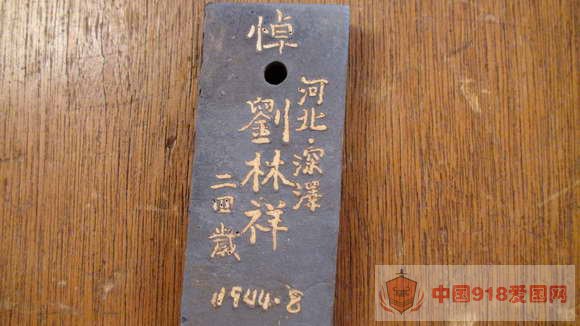 悼
河北·深澤
劉林祥
二四歲
1944.8
中国918爱国网